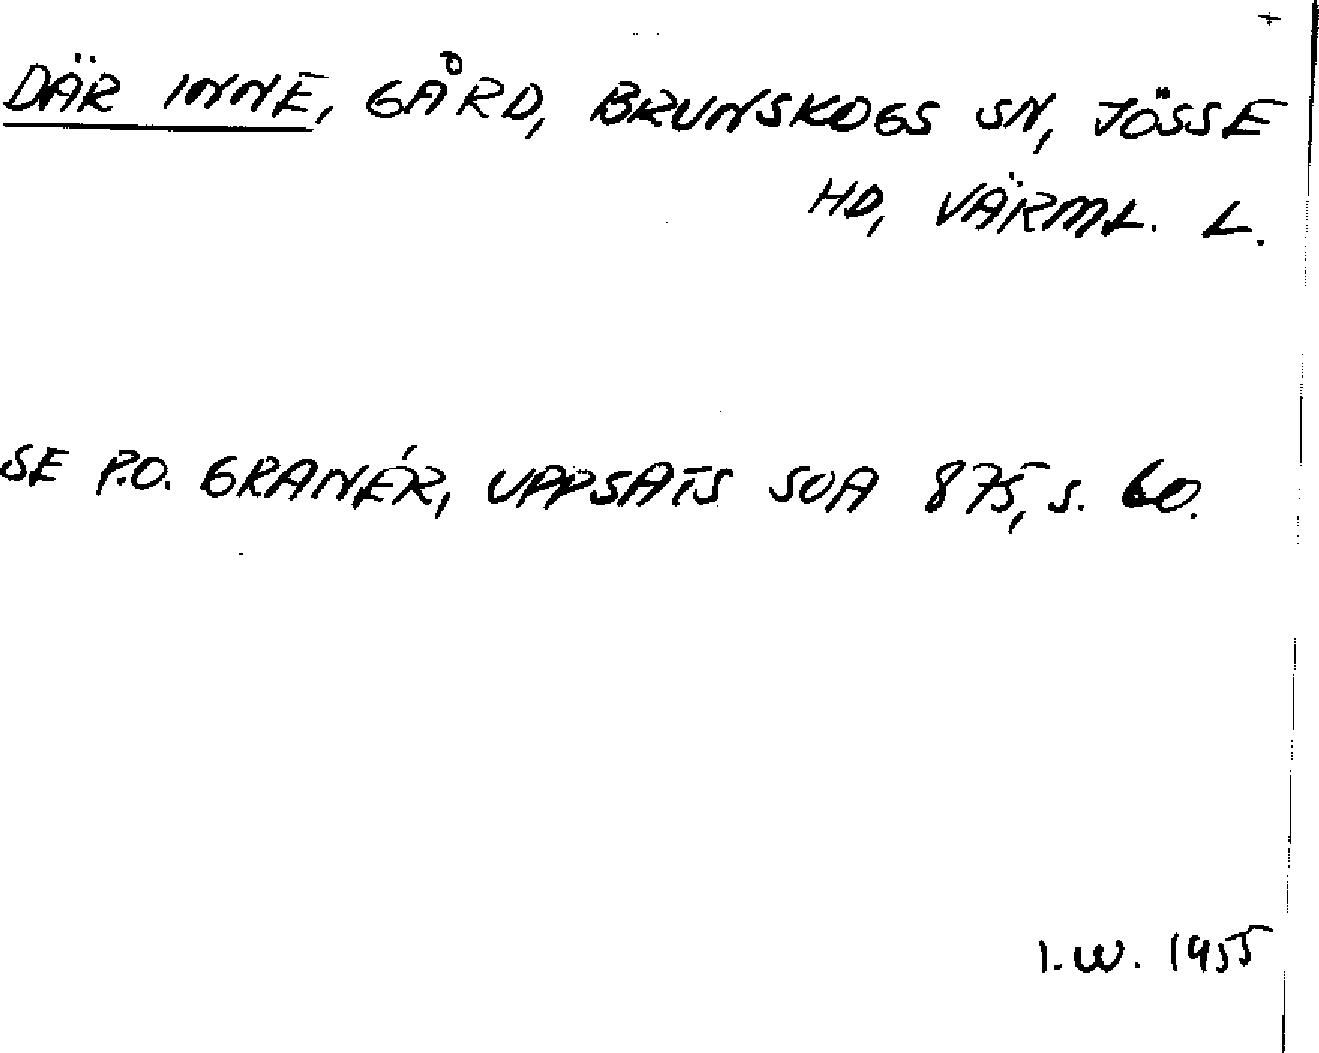 DÄR INNE, GÅRD, BRUNSKOGS SN, JÖSSE
HD, VÄRML. L.
SE P.O. GRANÉR, UPPSATS SOA 875, S. 60.
I.W. 1955